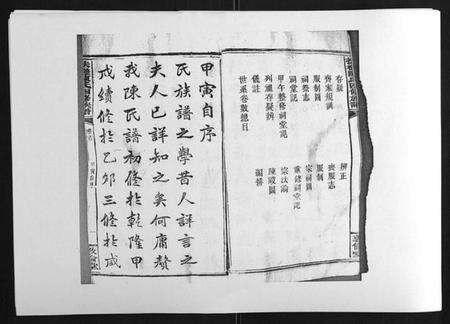 存疑 辨正
齊家規訓 喪服志
服制圖 服制
祠祭志 宗祠圖
祠堂記 重修祠堂記
甲午整修祠堂記 宗法論
列祖存疑辨 陳殿圖
儀註 編替
世系卷數總目
甲寅自序
氏族譜之學昔人詳言之
夫人已詳知之矣何庸贅
我陳氏譜初修於乾隆甲
戌續修於乙卯三修於咸